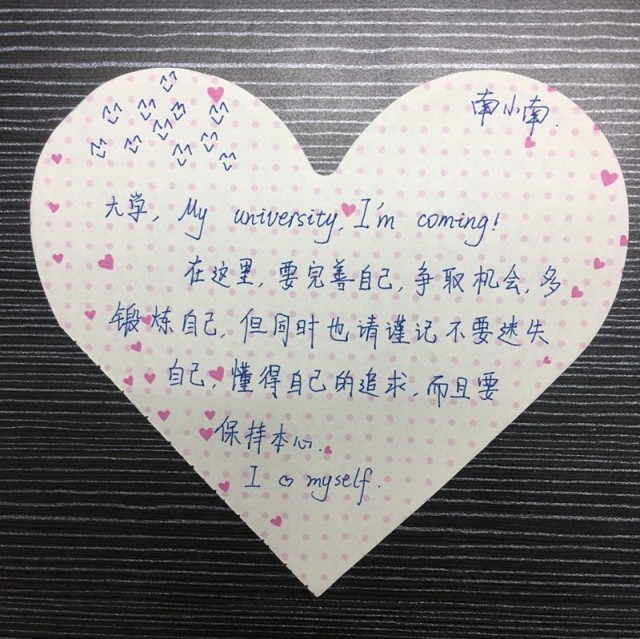 南小南.
大学, My university, I'm coming!
在这里, 要完善自己, 争取机会, 多
锻炼自己, 但同时也请谨记不要迷失
自己, 懂得自己的追求, 而且要
保持本心.
I ♡ myself.